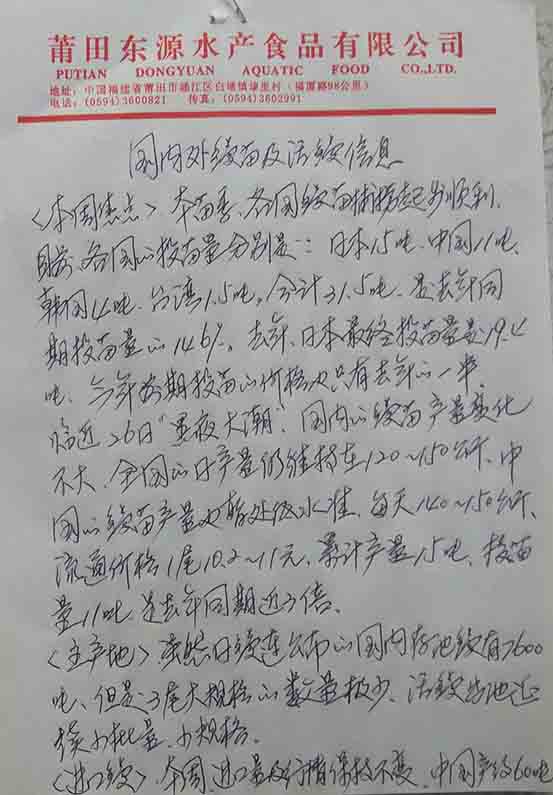 莆田东源水产食品有限公司
PUTIAN DONGYUAN AQUATIC FOOD CO.,LTD.
地址：中国福建省莆田市涵江区白塘镇埭里村（福厦路98公里）
电话：(0594)3600821 传真：(0594)3602991
国内外鳗苗及活鳗信息
<本周焦点> 本苗季、各国鳗苗捕捞起步顺利，
目前、各国的投苗量分别是：日本15吨、中国11吨、
韩国4吨、台湾1.5吨。合计31.5吨、是去年同
期投苗量的146%。去年、日本最终投苗量是19.4
吨、今年前期投苗的价格也只有去年的一半。
临近26日"黑夜大潮"、国内的鳗苗产量变化
不大、全国的日产量仍维持在120～150公斤、中
国的鳗苗产量也暂处低水准、每天140～150公斤、
流通价格1尾10.2～11元、累计产量15吨、投苗
量11吨、是去年同期近3倍。
<主产地> 虽然日鳗连公布的国内存池鳗有7600
吨、但是3尾大规格的数量极少、活鳗出池还
续小批量、小规格。
<进口鳗> 本周、进口量及行情保持不变、中国产约60吨